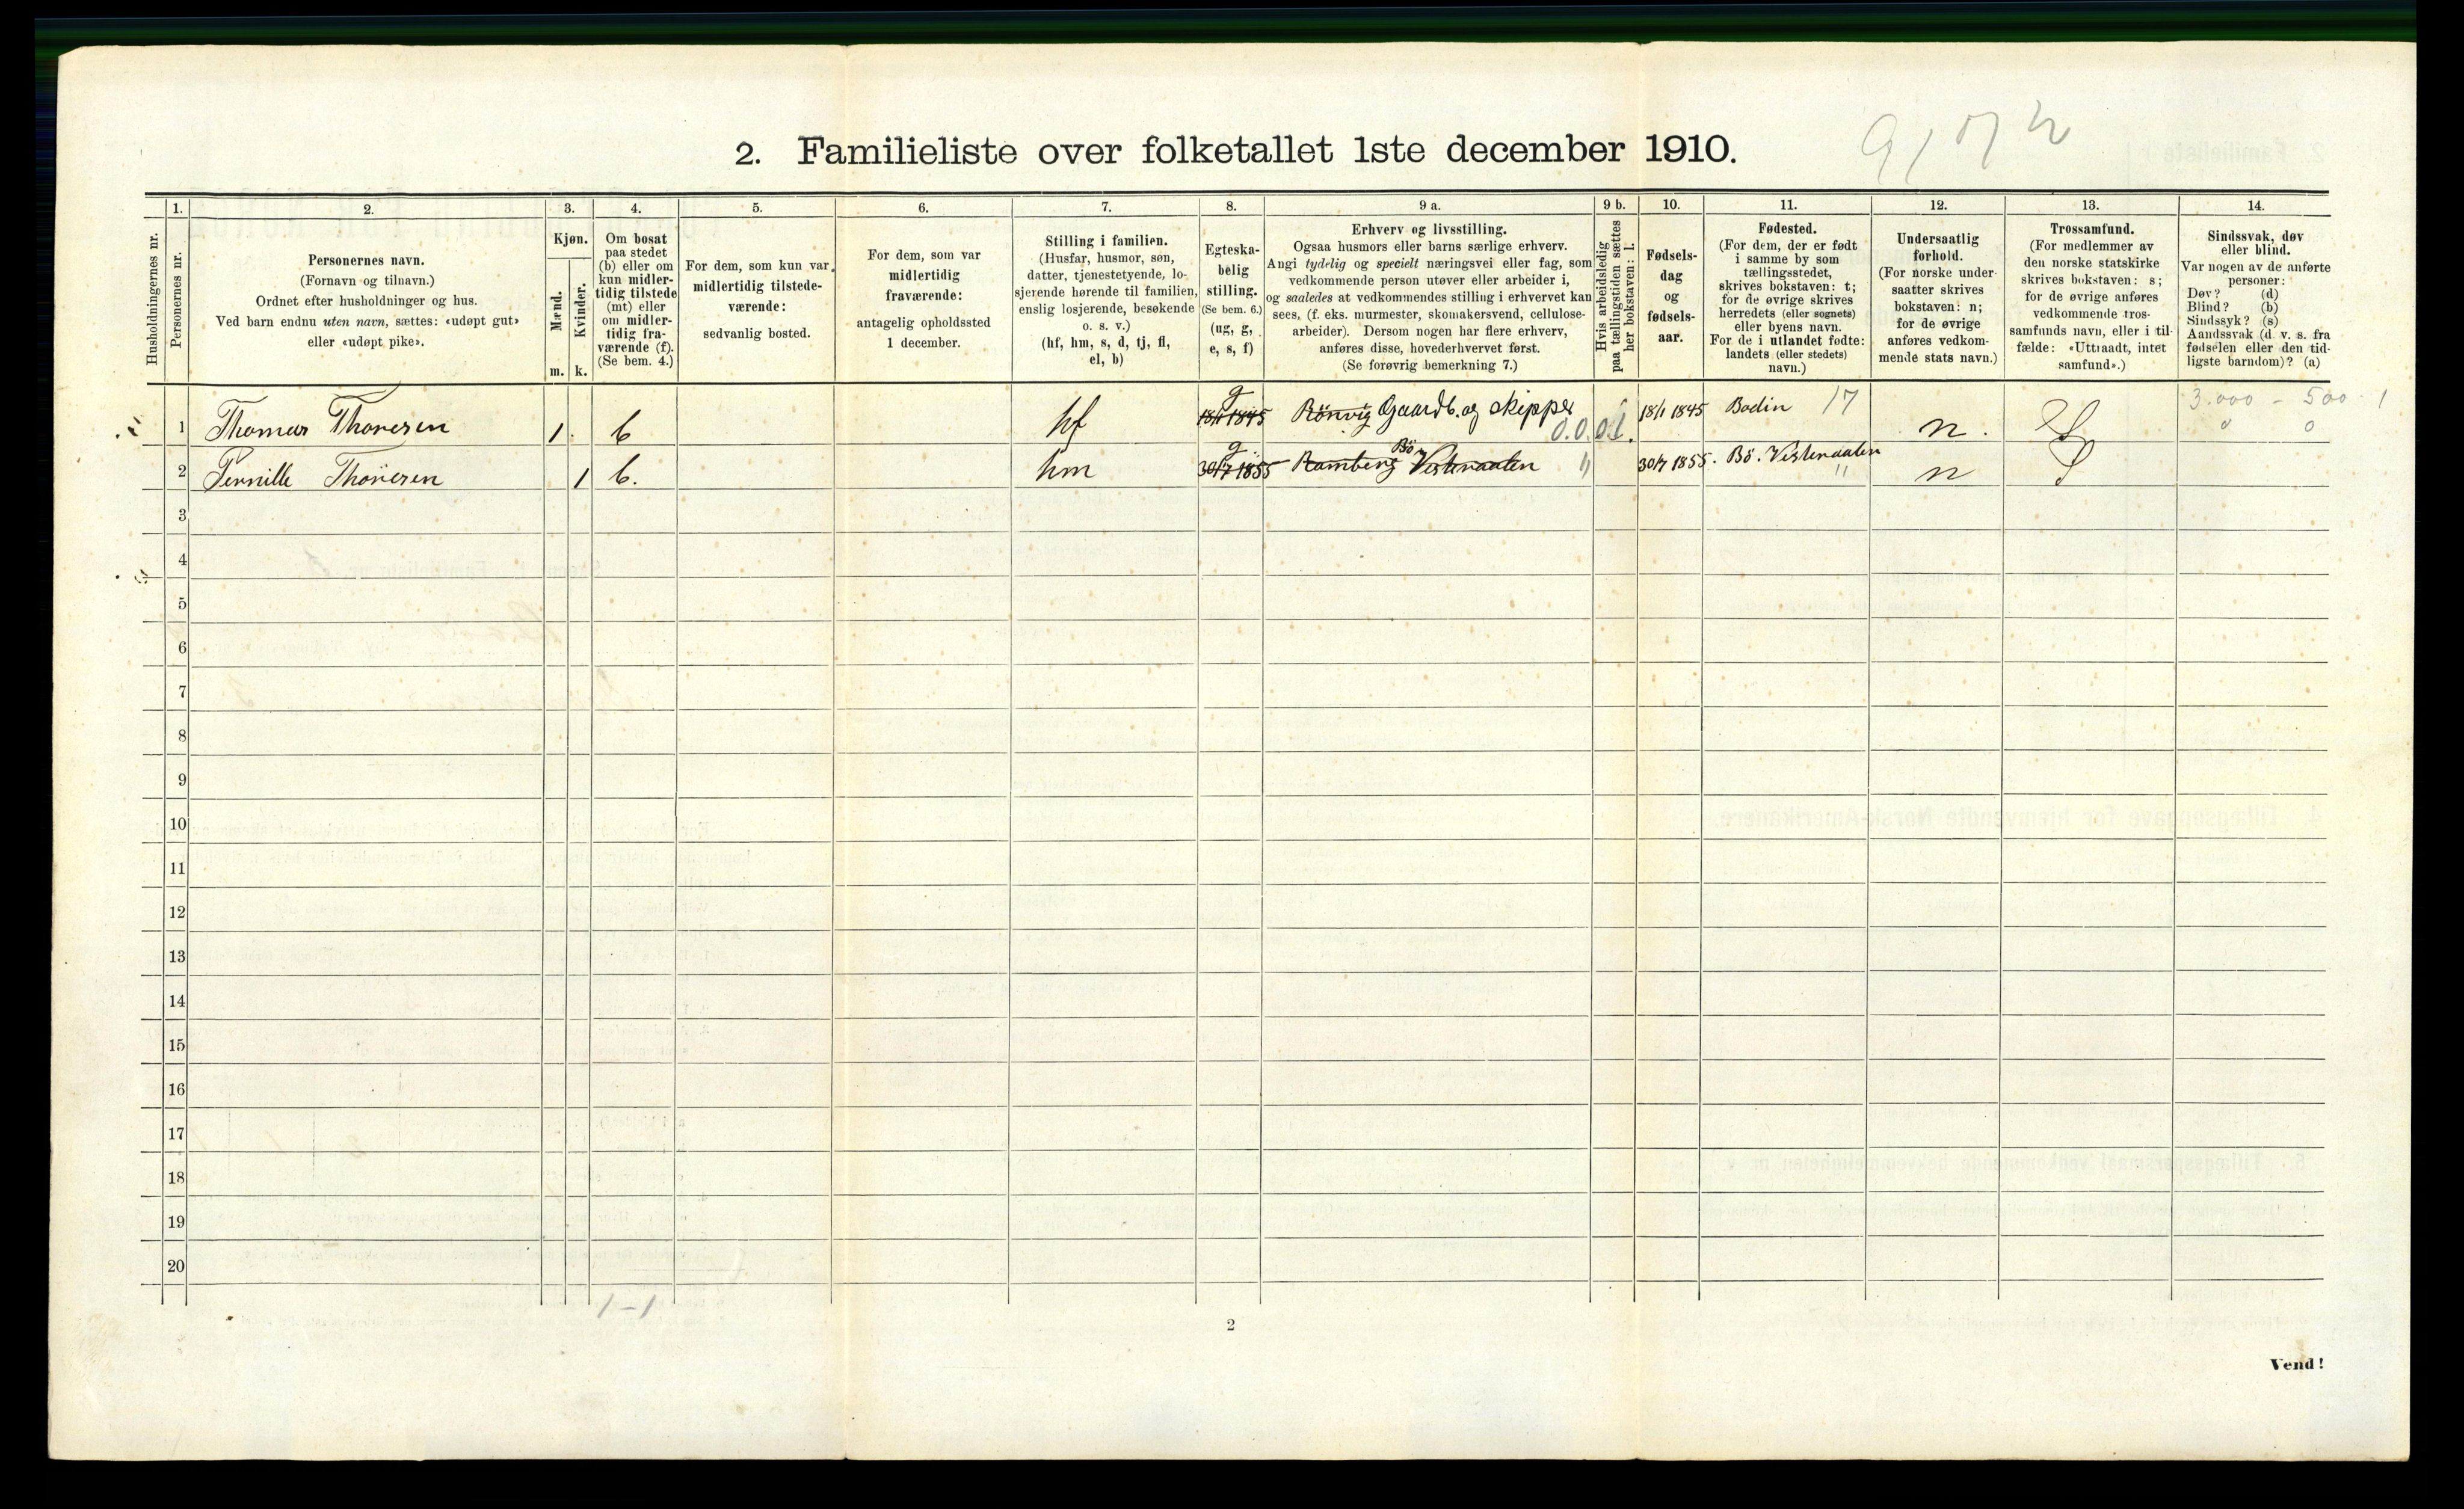 9172
2. Familieliste over folketallet 1ste december 1910.
Husholdningernes nr.
1.
Personernes nr.
2.
Personernes navn.
(Fornavn og tilnavn.)
Ordnet efter husholdninger og hus.
Ved barn endnu uten navn, sættes: «udøpt gut»
eller «udøpt pike».
3.
Kjøn.
Mænd.
Kvinder.
m. k.
4.
Om bosat
paa stedet
(b) eller om
kun midler-
tidig tilstede
(mt) eller
om midler-
tidig fra-
værende (f).
(Se bem. 4.)
5.
For dem, som kun var
midlertidig tilstede-
værende:
sedvanlig bosted.
6.
For dem, som var
midlertidig
fraværende:
antagelig opholdssted
1 december.
7.
Stilling i familien.
(Husfar, husmor, søn,
datter, tjenestetyende, lo-
sjerende hørende til familien,
enslig losjerende, besøkende
o. s. v.)
(hf, hm, s, d, tj, fl,
el, b)
8.
Egteska-
belig
stilling.
(Se bem. 6.)
(ug, g,
e, s, f)
9 a.
Erhverv og livsstilling.
Ogsaa husmors eller barns særlige erhverv.
Angi tydelig og specielt næringsvei eller fag, som
vedkommende person utøver eller arbeider i,
og saaledes at vedkommendes stilling i erhvervet kan
sees, (f. eks. murmester, skomakersvend, cellulose-
arbeider). Dersom nogen har flere erhverv,
anføres disse, hovederhvervet først.
(Se forøvrig bemerkning 7.)
9 b.
Hvis arbeidsledig
paa tællingstiden sættes
her bokstaven: l.
10.
Fødsels-
dag
og
fødsels-
aar.
11.
Fødested.
(For dem, der er født
i samme by som
tællingsstedet,
skrives bokstaven: t;
for de øvrige skrives
herredets (eller sognets)
eller byens navn.
For de i utlandet fødte:
landets (eller stedets)
navn.)
12.
Undersaatlig
forhold.
(For norske under-
saatter skrives
bokstaven: n;
for de øvrige
anføres vedkom-
mende stats navn.)
13.
Trossamfund.
(For medlemmer av
den norske statskirke
skrives bokstaven: s;
for de øvrige anføres
vedkommende tros-
samfunds navn, eller i til-
fælde: «Uttraadt, intet
samfund».)
14.
Sindssvak, døv
eller blind.
Var nogen av de anførte
personer:
Døv? (d)
Blind? (b)
Sindssyk? (s)
Aandssvak (d. v. s. fra
fødselen eller den tid-
ligste barndom)? (a)
1 Thomas Thoresen 1. b hf 18/1 1845 g Rönvig Gaardb. og skipper 0.0.01. 18/1 1845 Bodin 17 n. S 3.000 - 500 · 1
2 Pernille Thoresen 1 b. hm 30/7 1855 g Ramberg Bö Vesteraalen " 30/7 1855. Bö. Vesteraalen " n S
3
4
5
6
7
8
9
10
11
12
13
14
15
16
17
18
19
20
1-1
2
Vend!